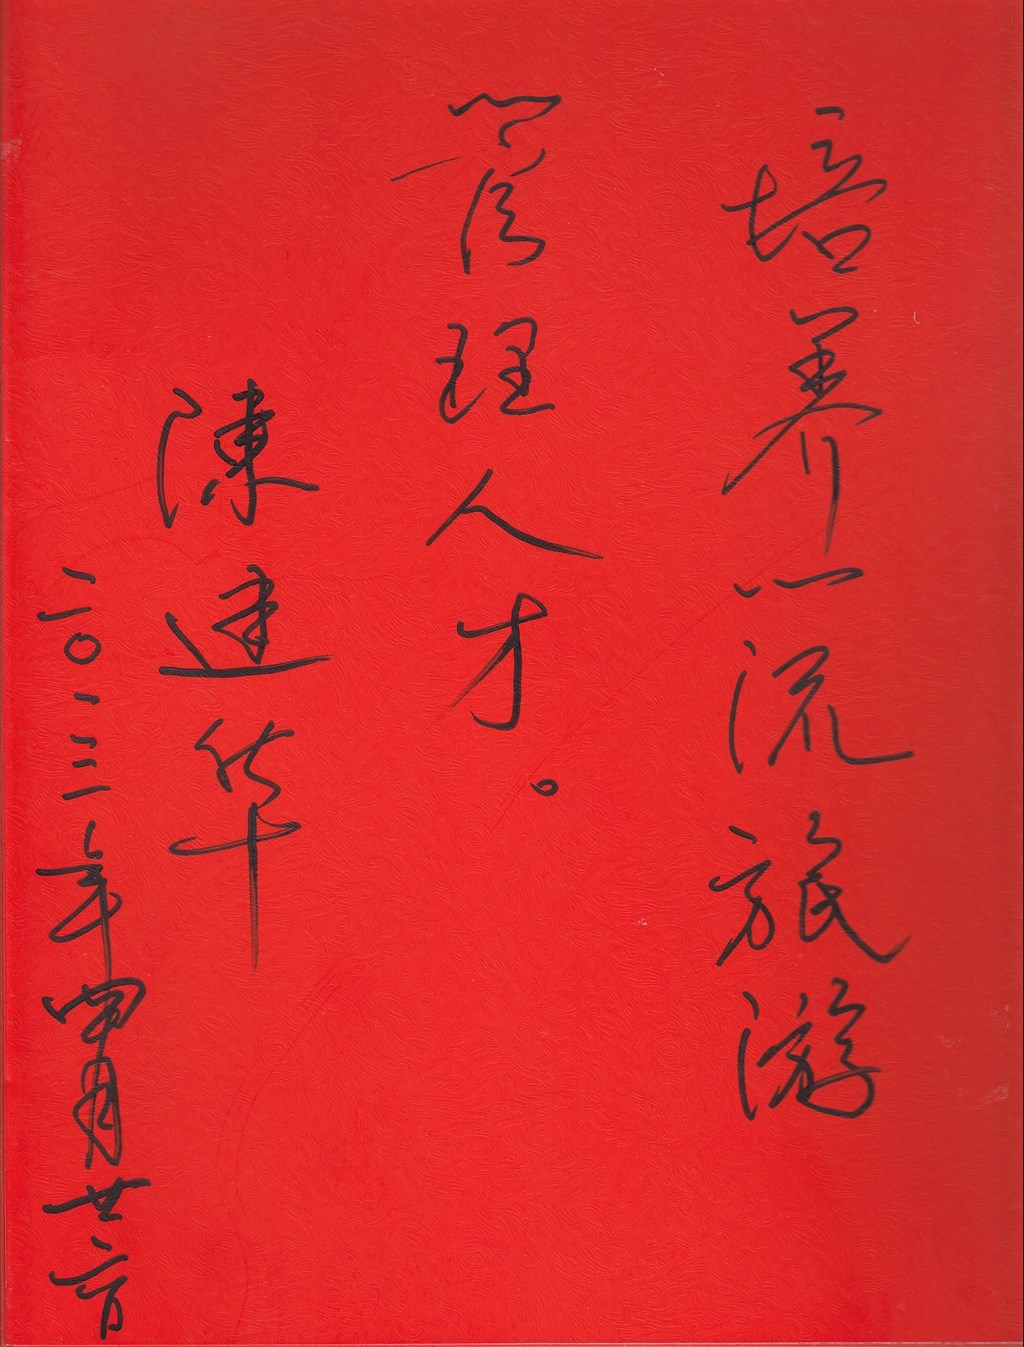 培养一流旅游
管理人才。
陳建华
二〇一三年四月廿二日